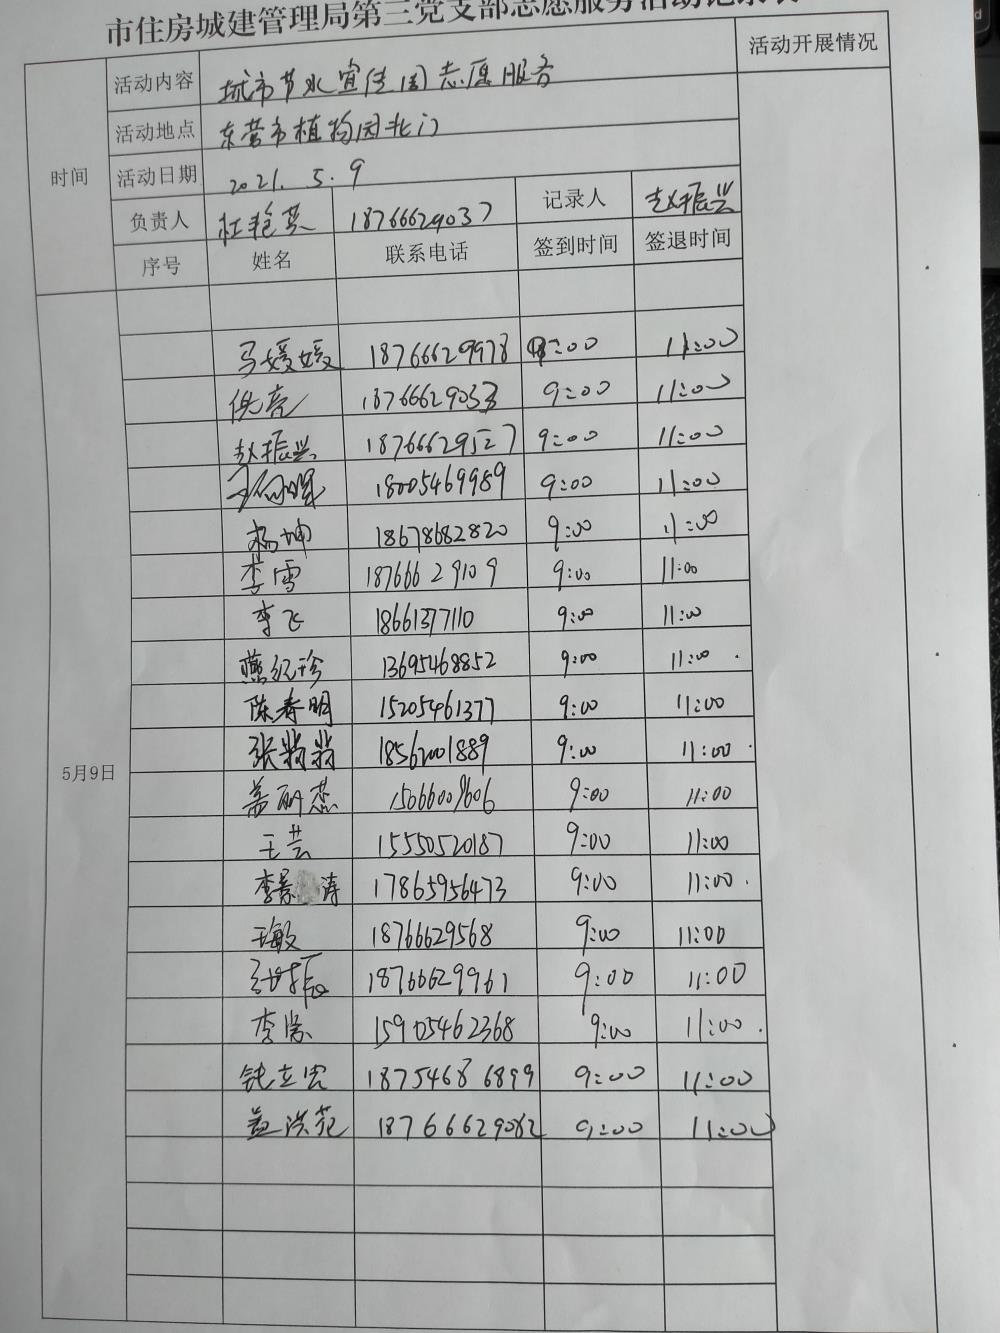 市住房城建管理局第三党支部志愿服务活动记录表
时间 活动内容 城市节水宣传周志愿服务 活动开展情况
活动地点 东营市植物园北门
活动日期 2021.5.9
负责人 杜艳芸 18766629037 记录人 赵振兴
序号 姓名 联系电话 签到时间 签退时间
马媛媛 18766629978 9:00 11:00
倪亮 18766629033 9:00 11:00
赵振兴 18766629527 9:00 11:00
18005469989 9:00 11:00
杨坤 18678682820 9:00 11:00
李雪 18766629109 9:00 11:00
李飞 18661377110 9:00 11:00
燕纪珍 13695468852 9:00 11:00
陈春明 15205461377 9:00 11:00
5月9日 张翡翡 18562001889 9:00 11:00
盖丽蕊 15066009606 9:00 11:00
王芸 15550520187 9:00 11:00
李景涛 17865956473 9:00 11:00
王敏 18766629568 9:00 11:00
18766629961 9:00 11:00
李 15905462368 9:00 11:00
18754686899 9:00 11:00
盖洪苑 18766629062 9:00 11:00